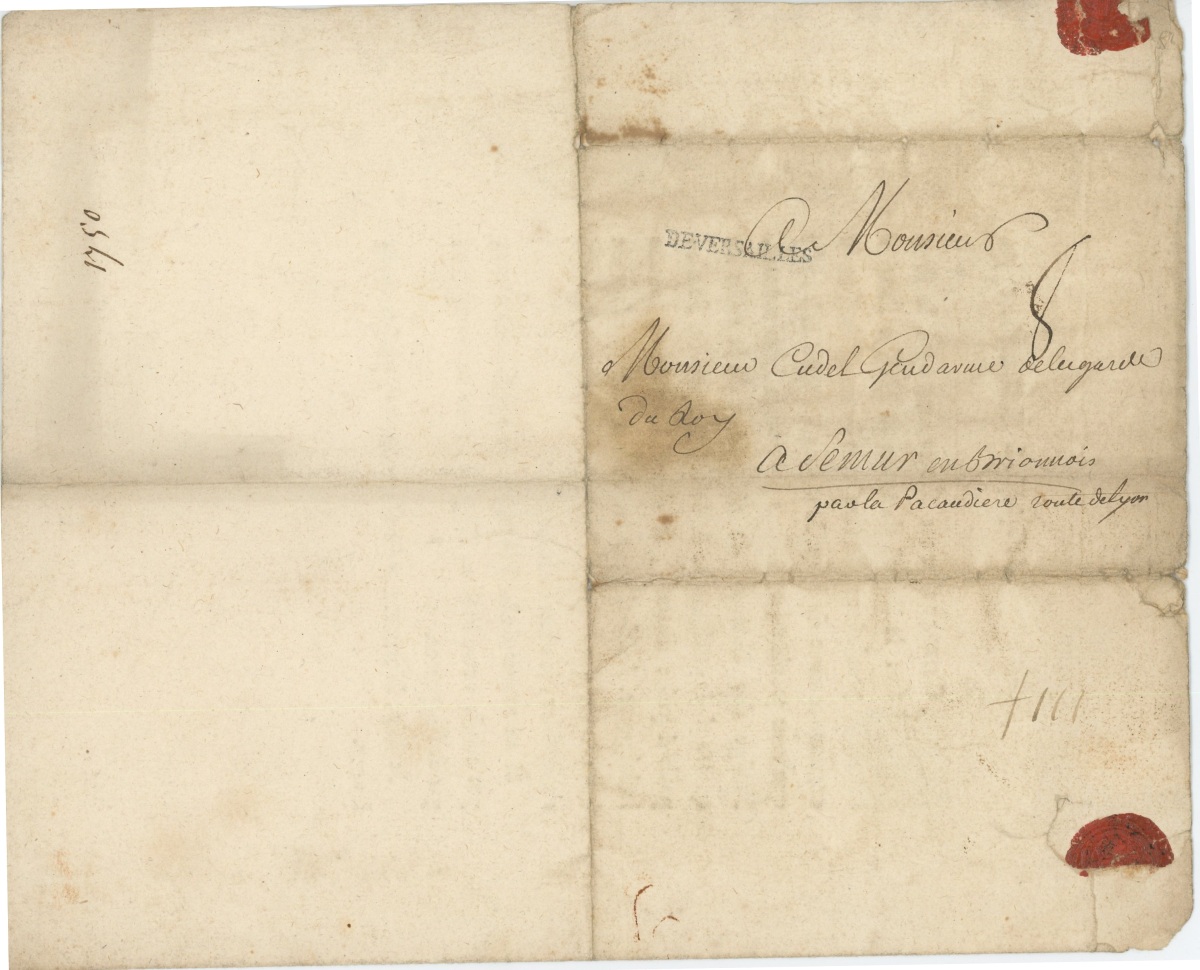 1750
A Monsieur
DE VERSAILLES
8
Monsieur Cudel Gendarme de la garde
du Roy
A Semur en brionnois
par la Pacaudiere route de Lyon